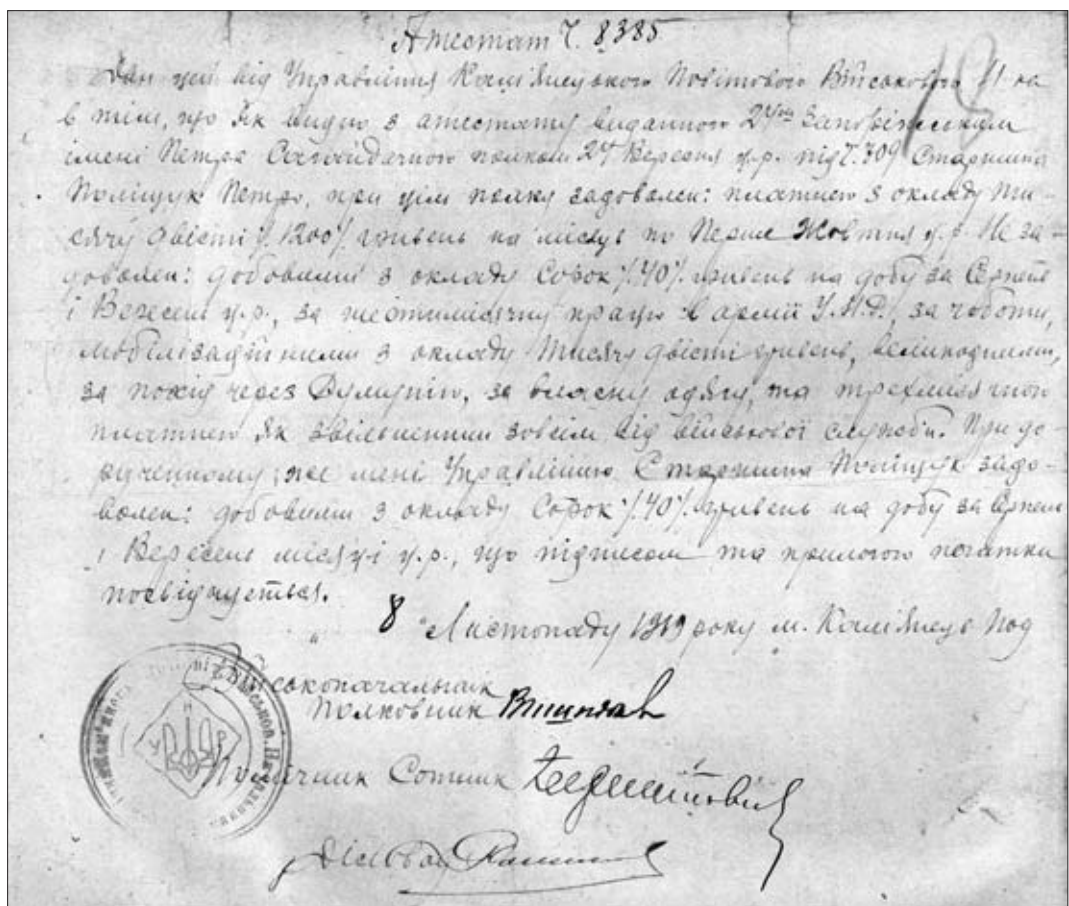 Атестат Ч. 8385
Дан цей від Управління Камʼянецького Повітового Військового Н-ка
в тім, що як видно з атестату виданного 2ым Запорізьким
імені Петра Сагайдачного полком 24 Вересня ц.р. під Ч. 709 Старшина
Поліщук Петро, при цім полку задоволен: платнею з окладу ти-
сячу двісті /1200/ гривень на місяць по Перше Жовтня ц.р. Не за-
доволен: добовими з окладу сорок /40/ гривень на добу за Серпень
і Вересень ц.р., за шестимісячну працю в армії У.Н.Р., за чоботи,
мобілізаційними з окладу тисячу двісті гривень, великодніми,
за похід через Румунію, за власну одягу, та трехмісячною
платнею як звільненний зовсім від військової служби. При до-
рученному же мені Управлінню Старшина Поліщук задо-
волен: добовими з окладу сорок /40/ гривень на добу за Серпень
і Вересень місяці ц.р., що підписом та прилогою печатки
посвідчується.
" 8 " Листопаду 1919 року м. Камʼянець Под
Військоначальник
Полковник
Помічник Сотник
12
У Н Р